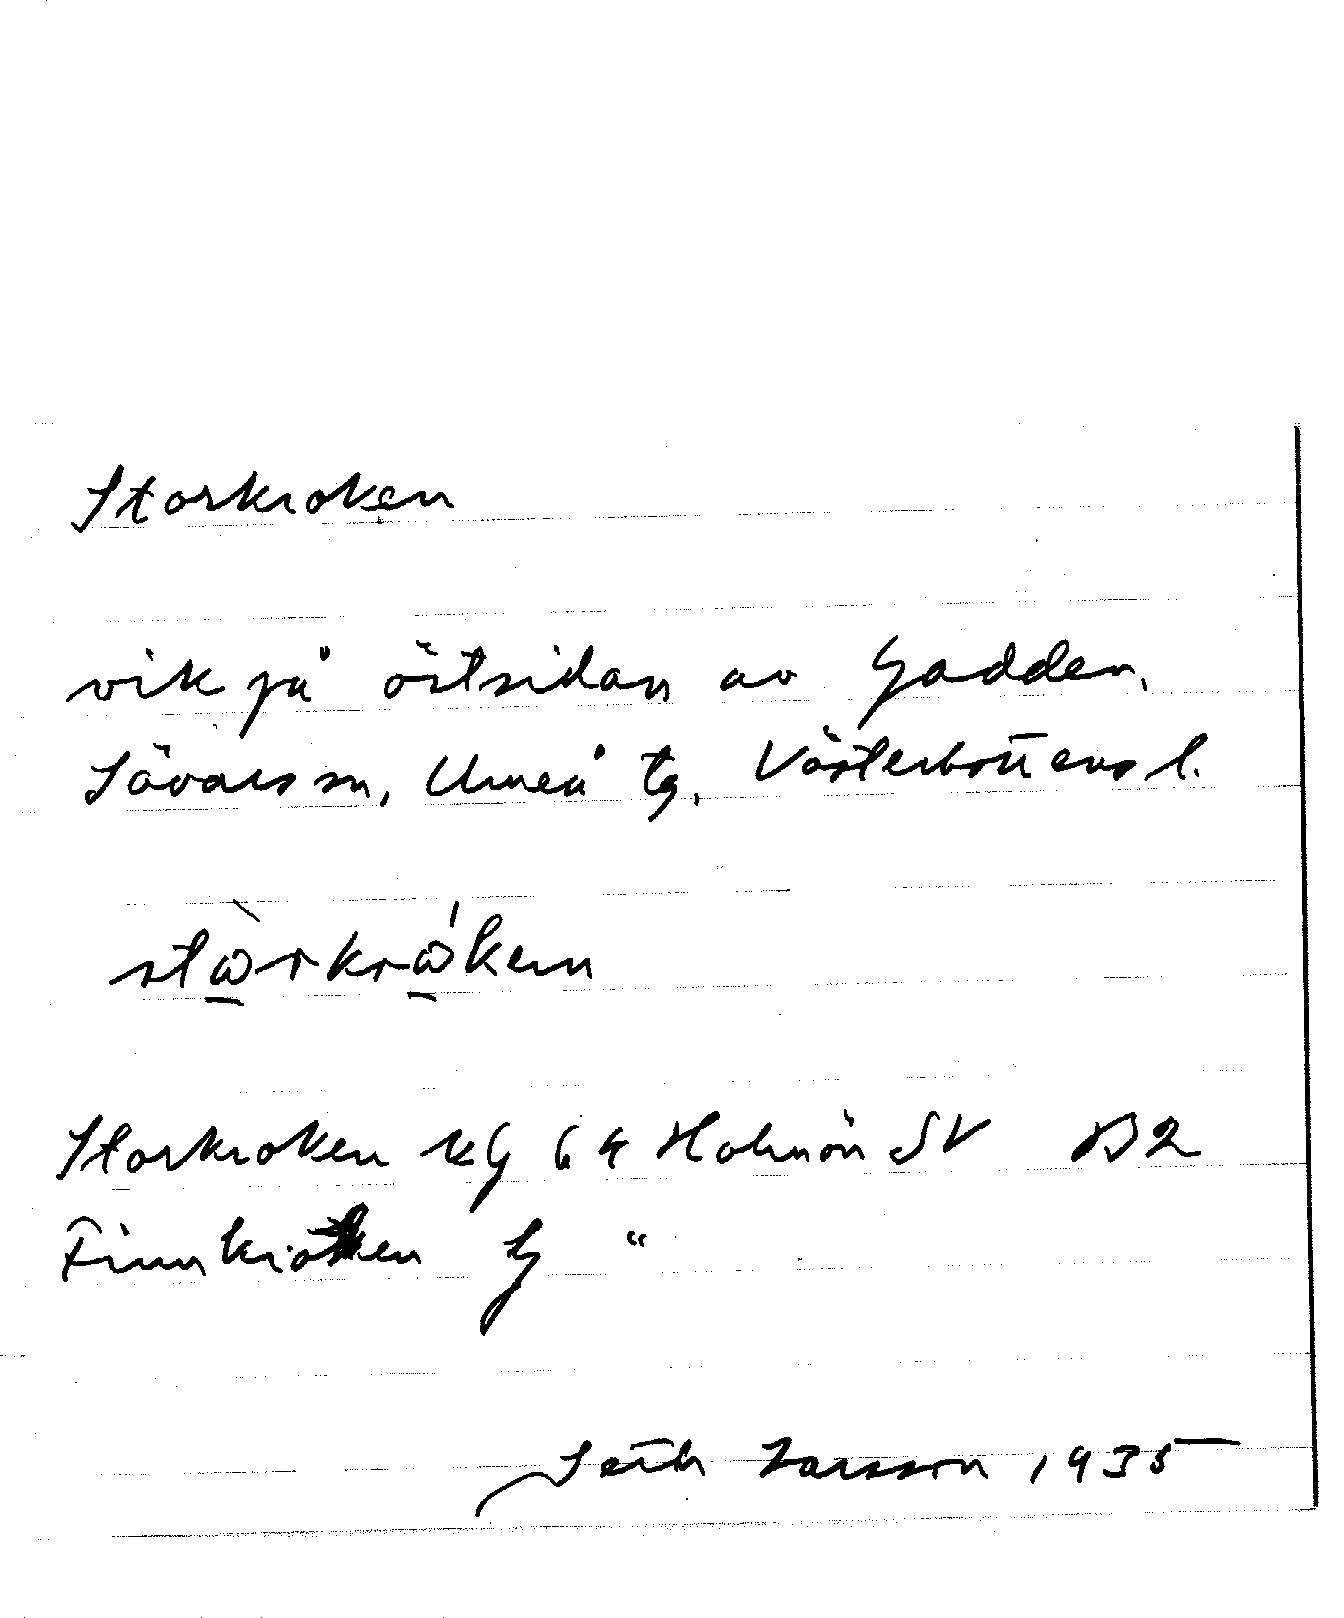 Storkroken
vik på östsidan av Gadden,
Sävars sn, Umeå tg, Västerbottens l.
Storkroken kG 64 Holmön SV B2
Finnkroken G "
Seth Larsson 1935